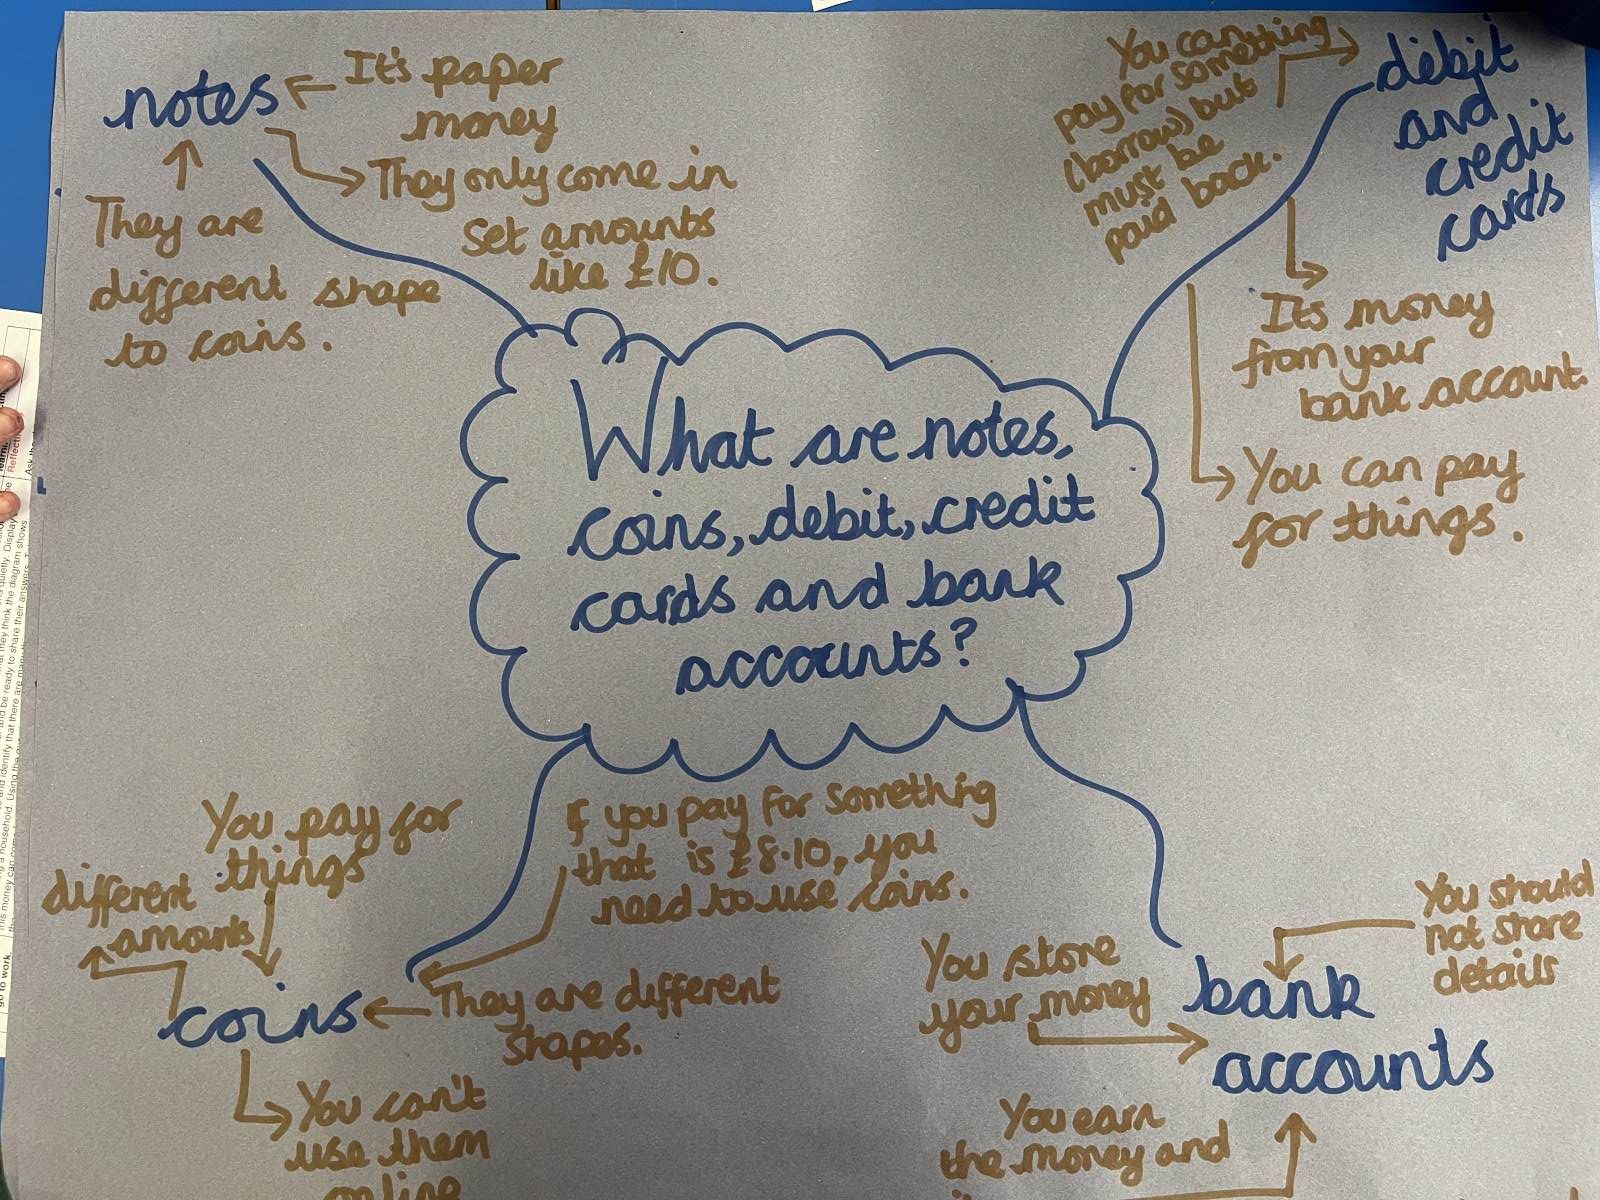 notes
It's paper
money
They only come in
set amounts
like £10.
They are
different shape
to coins.
debit
and
credit
cards
You can
pay for something
(borrow) but
must be
paid back.
It's money
from your
bank account.
You can pay
for things.
What are notes,
coins, debit, credit
cards and bank
accounts?
coins
You pay for
things
different
amounts
If you pay for something
that is £8.10, you
need to use coins.
They are different
shapes.
You can't
use them
online
bank
accounts
You should
not store
details
You store
your money
You earn
the money and
go to work.